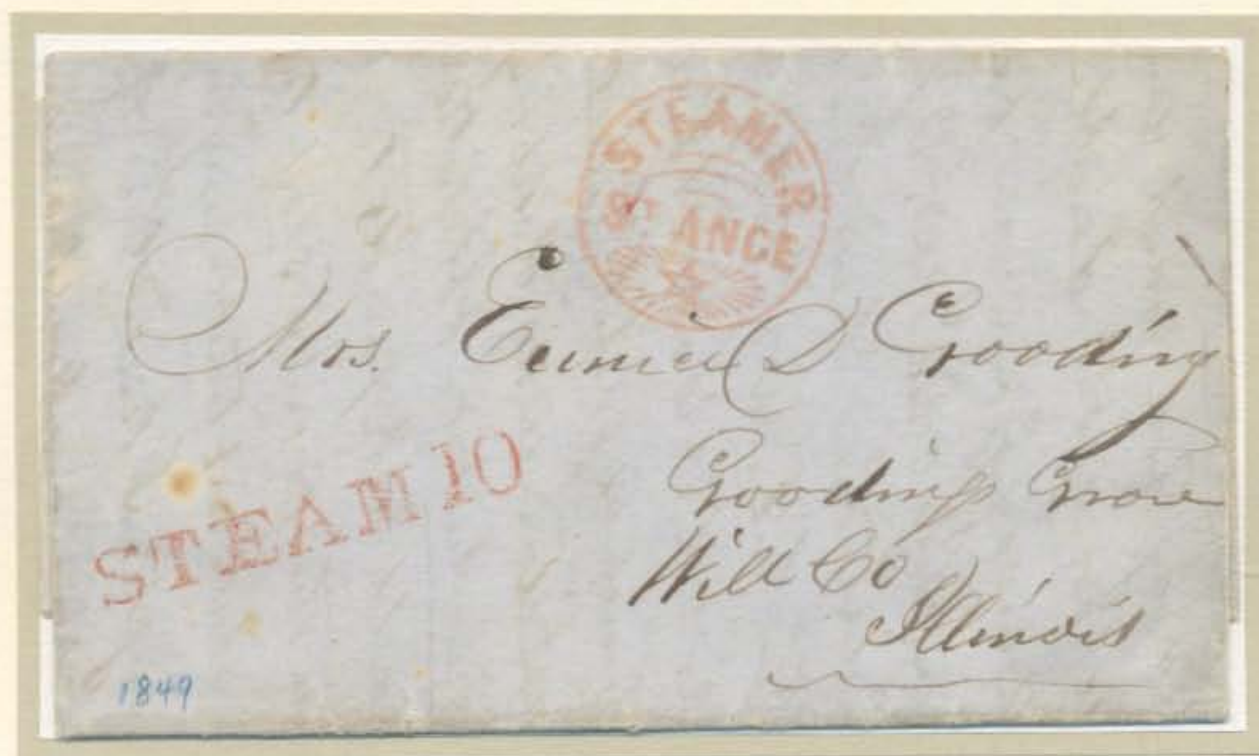 STEAMER
ST ANGE
Mrs. Eunice D Gooding
Goodings Grove
Will Co
Illinois
STEAM 10
1849